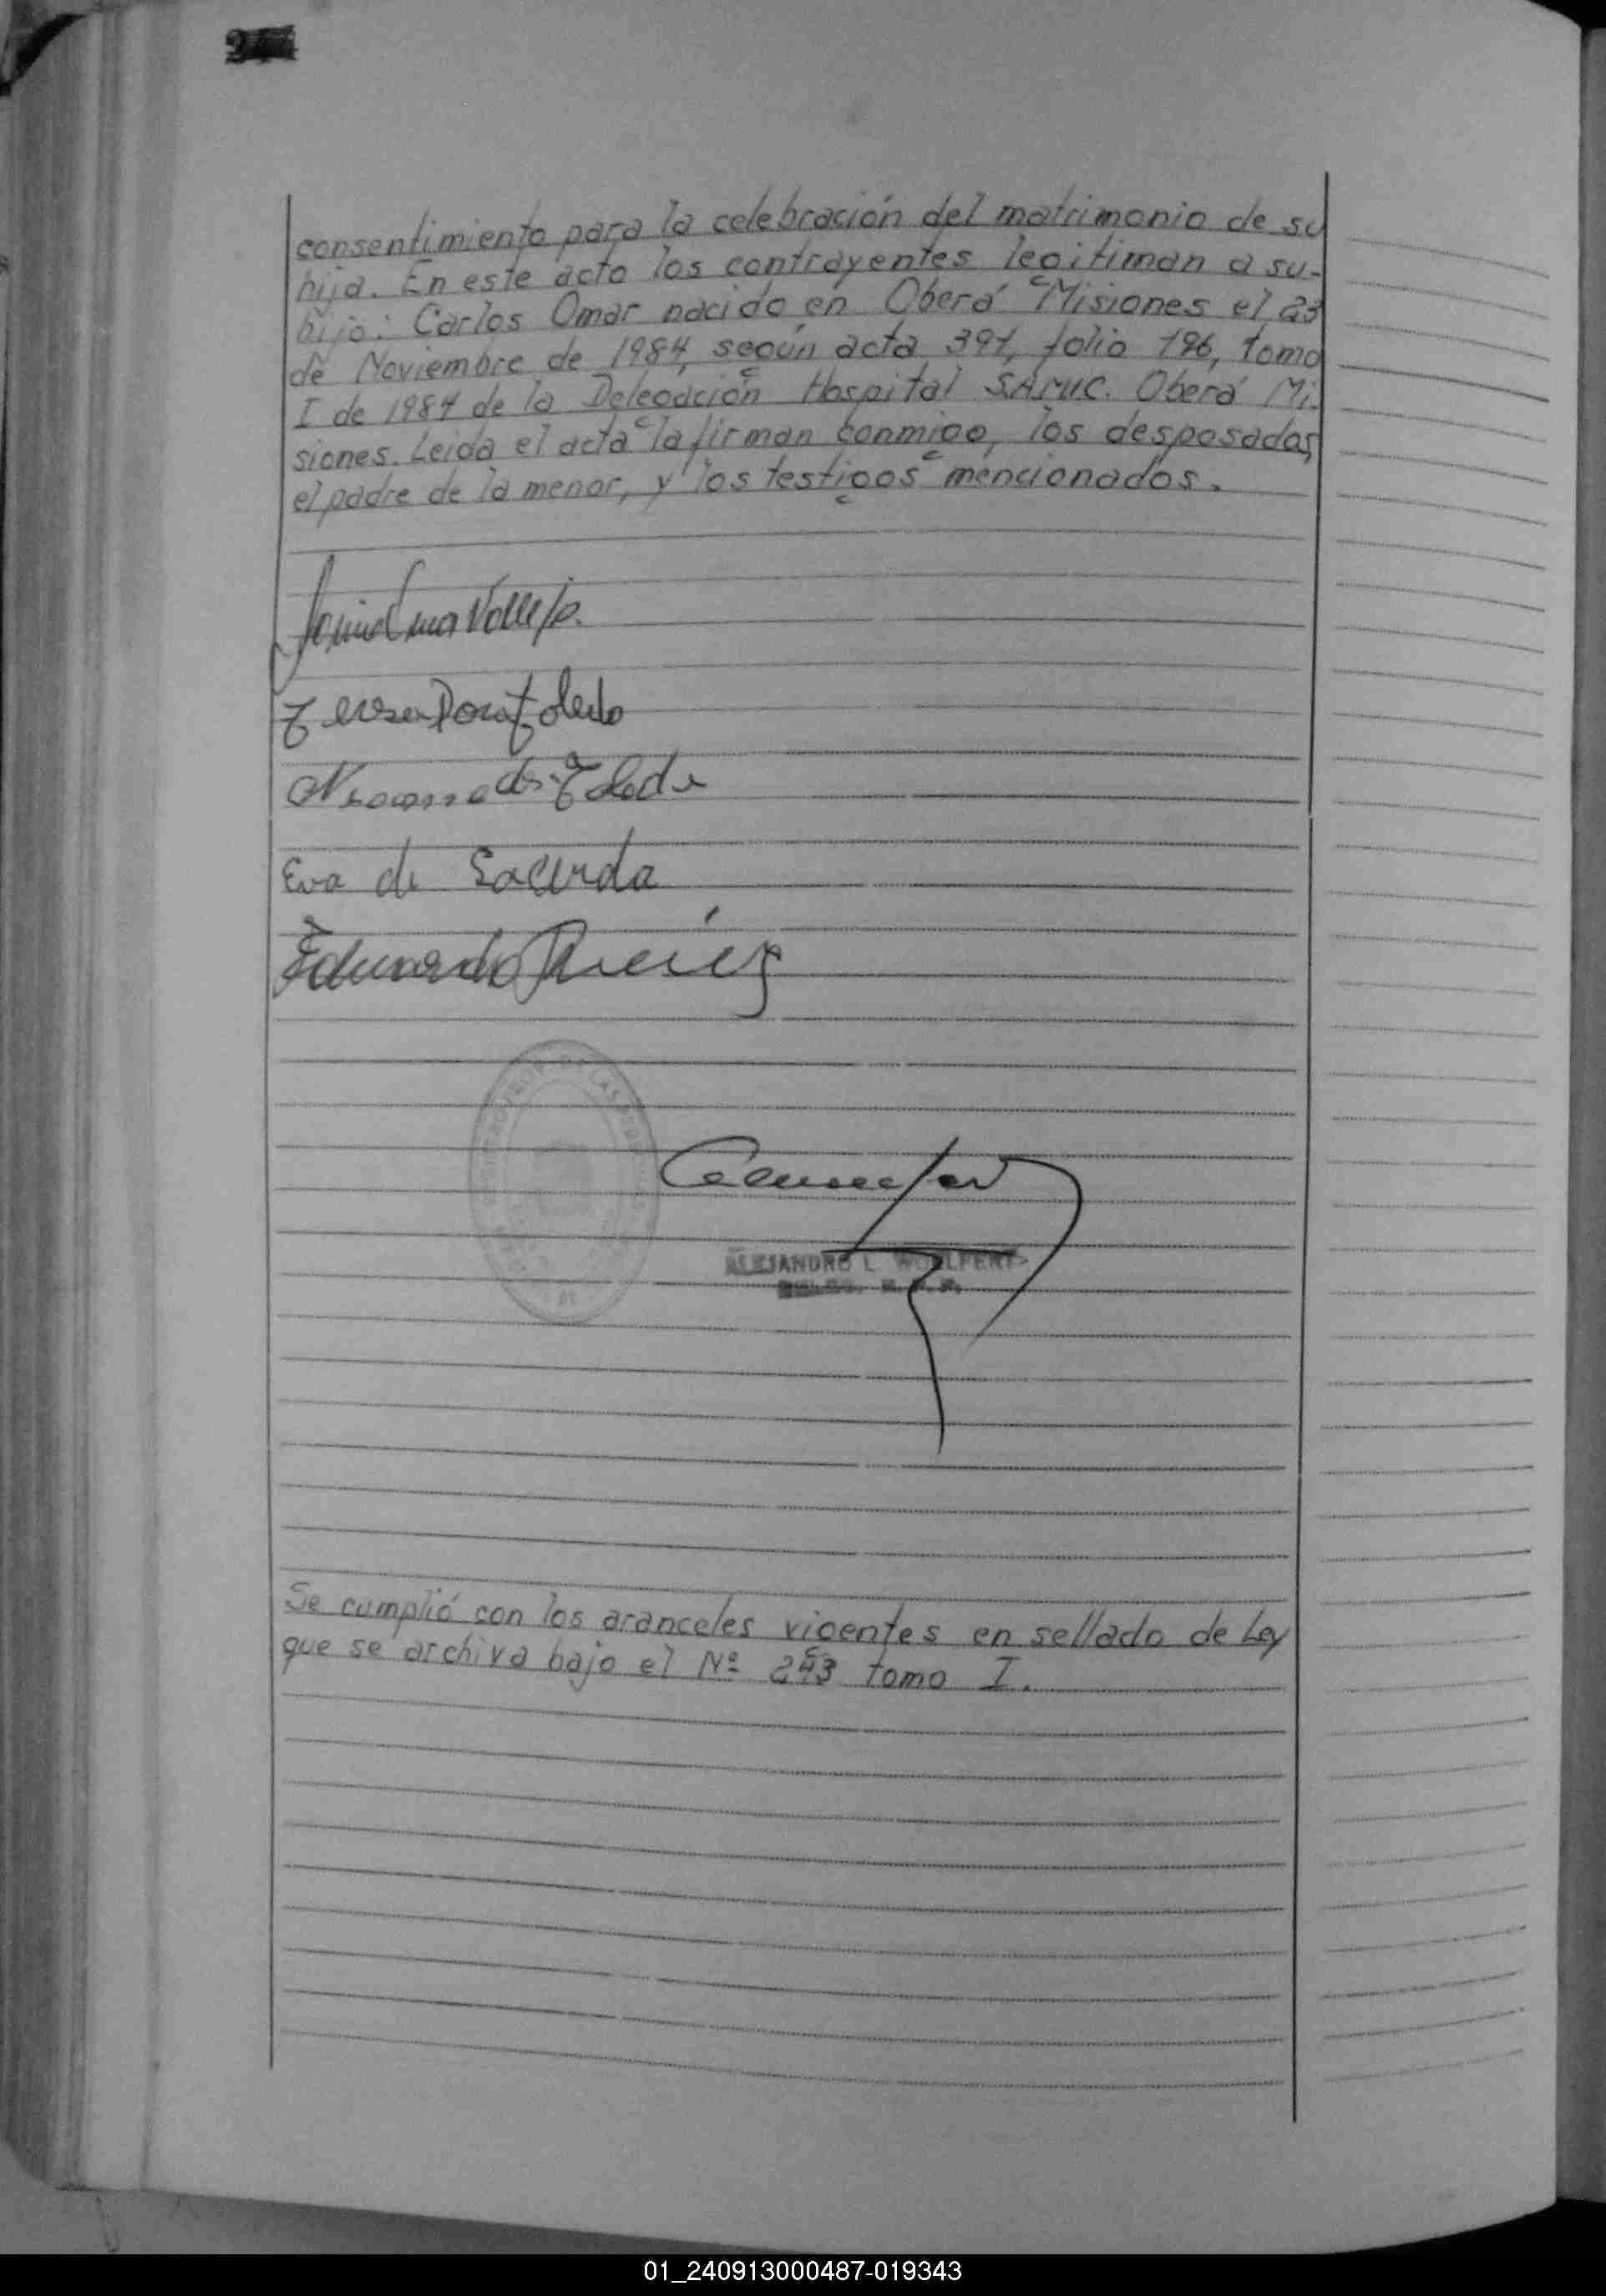 consentimiento para la celebración del matrimonio de su
hija. En este acto los contrayentes legitiman a su-
hijo: Carlos Omar nacido en Oberá Misiones el 23
de Noviembre de 1984, según acta 391, folio 196, tomo
I de 1984 de la Delegación Hospital SAMIC. Oberá Mi-
siones. Leida el acta la firman conmigo, los desposados,
el padre de la menor, y los testigos mencionados.
Vallejo.
Teresa Dora Toledo
Toledo
Eva de Sacerda
Eduardo
ALEJANDRO L. WOLFERT
Se cumplió con los aranceles vigentes en sellado de Ley
que se archiva bajo el Nº 243 tomo I.
01_240913000487-019343